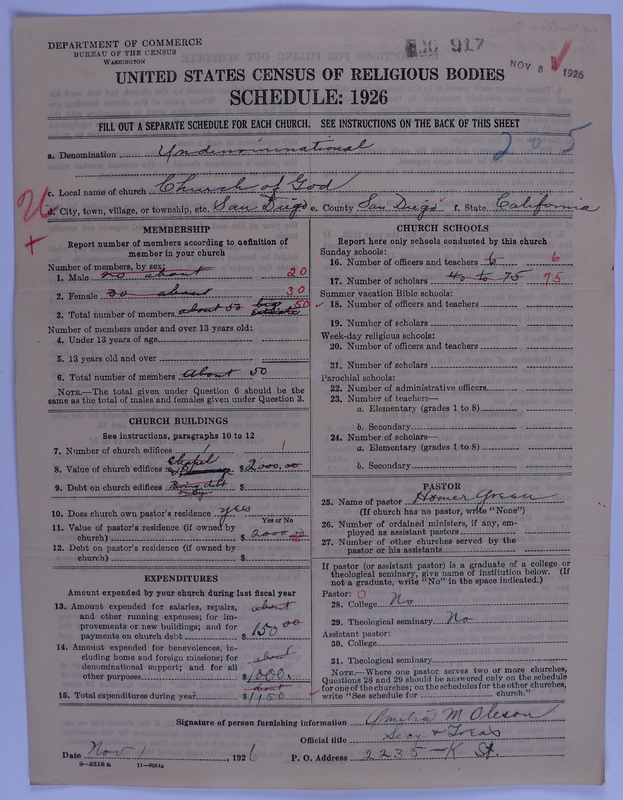 DEPARTMENT OF COMMERCE
BUREAU OF THE CENSUS
WASHINGTON
917
NOV 8 1926
UNITED STATES CENSUS OF RELIGIOUS BODIES
SCHEDULE: 1926
FILL OUT A SEPARATE SCHEDULE FOR EACH CHURCH. SEE INSTRUCTIONS ON THE BACK OF THIS SHEET
a. Denomination Undenominational
c. Local name of church Church of God
d. City, town, village, or township, etc. San Diego e. County San Diego f. State California
MEMBERSHIP
Report number of members according to definition of
member in your church
Number of members, by sex:
1. Male 20 about 20
2. Female 30 about 30
3. Total number of members about 50 50
Number of members under and over 13 years old:
4. Under 13 years of age
5. 13 years old and over
6. Total number of members About 50
NOTE.—The total given under Question 6 should be
same as the total of males and females given under Question 3.
CHURCH BUILDINGS
See instructions, paragraphs 10 to 12
7. Number of church edifices 1 1
Chapel
8. Value of church edifices $2000.00
9. Debt on church edifices
10. Does church own pastor's residence yes
Yes or No
11. Value of pastor's residence (if owned by
church) $2000.00
12. Debt on pastor's residence (if owned by
church) $
EXPENDITURES
Amount expended by your church during last fiscal year
13. Amount expended for salaries, repairs, about
and other running expenses; for im-
provements or new buildings; and for
payments on church debt $150.00
14. Amount expended for benevolences, in-
cluding home and foreign missions; for about
denominational support; and for all
other purposes $1000.
about
15. Total expenditures during year $1150
CHURCH SCHOOLS
Report here only schools conducted by this church
Sunday schools:
16. Number of officers and teachers 6 6
17. Number of scholars 40 to 75 75
Summer vacation Bible schools:
18. Number of officers and teachers
19. Number of scholars
Week-day religious schools:
20. Number of officers and teachers
21. Number of scholars
Parochial schools:
22. Number of administrative officers
23. Number of teachers—
a. Elementary (grades 1 to 8)
b. Secondary
24. Number of scholars—
a. Elementary (grades 1 to 8)
b. Secondary
PASTOR
25. Name of pastor Homer
(If church has no pastor, write "None")
26. Number of ordained ministers, if any, em-
ployed as assistant pastors
27. Number of other churches served by the
pastor or his assistants
If pastor (or assistant pastor) is a graduate of a college or
theological seminary, give name of institution below. (If
not a graduate, write "No" in the space indicated.)
Pastor: 0
28. College No
29. Theological seminary No
Assistant pastor:
30. College
31. Theological seminary
NOTE.—Where one pastor serves two or more churches,
Questions 28 and 29 should be answered only on the schedule
for one of the churches; on the schedules for the other churches,
write "See schedule for church."
Signature of person furnishing information M Oleson
Official title Secy & Treas
Date Nov 1, 1926 P. O. Address 2235-K St.
8-5518a 11-9024a